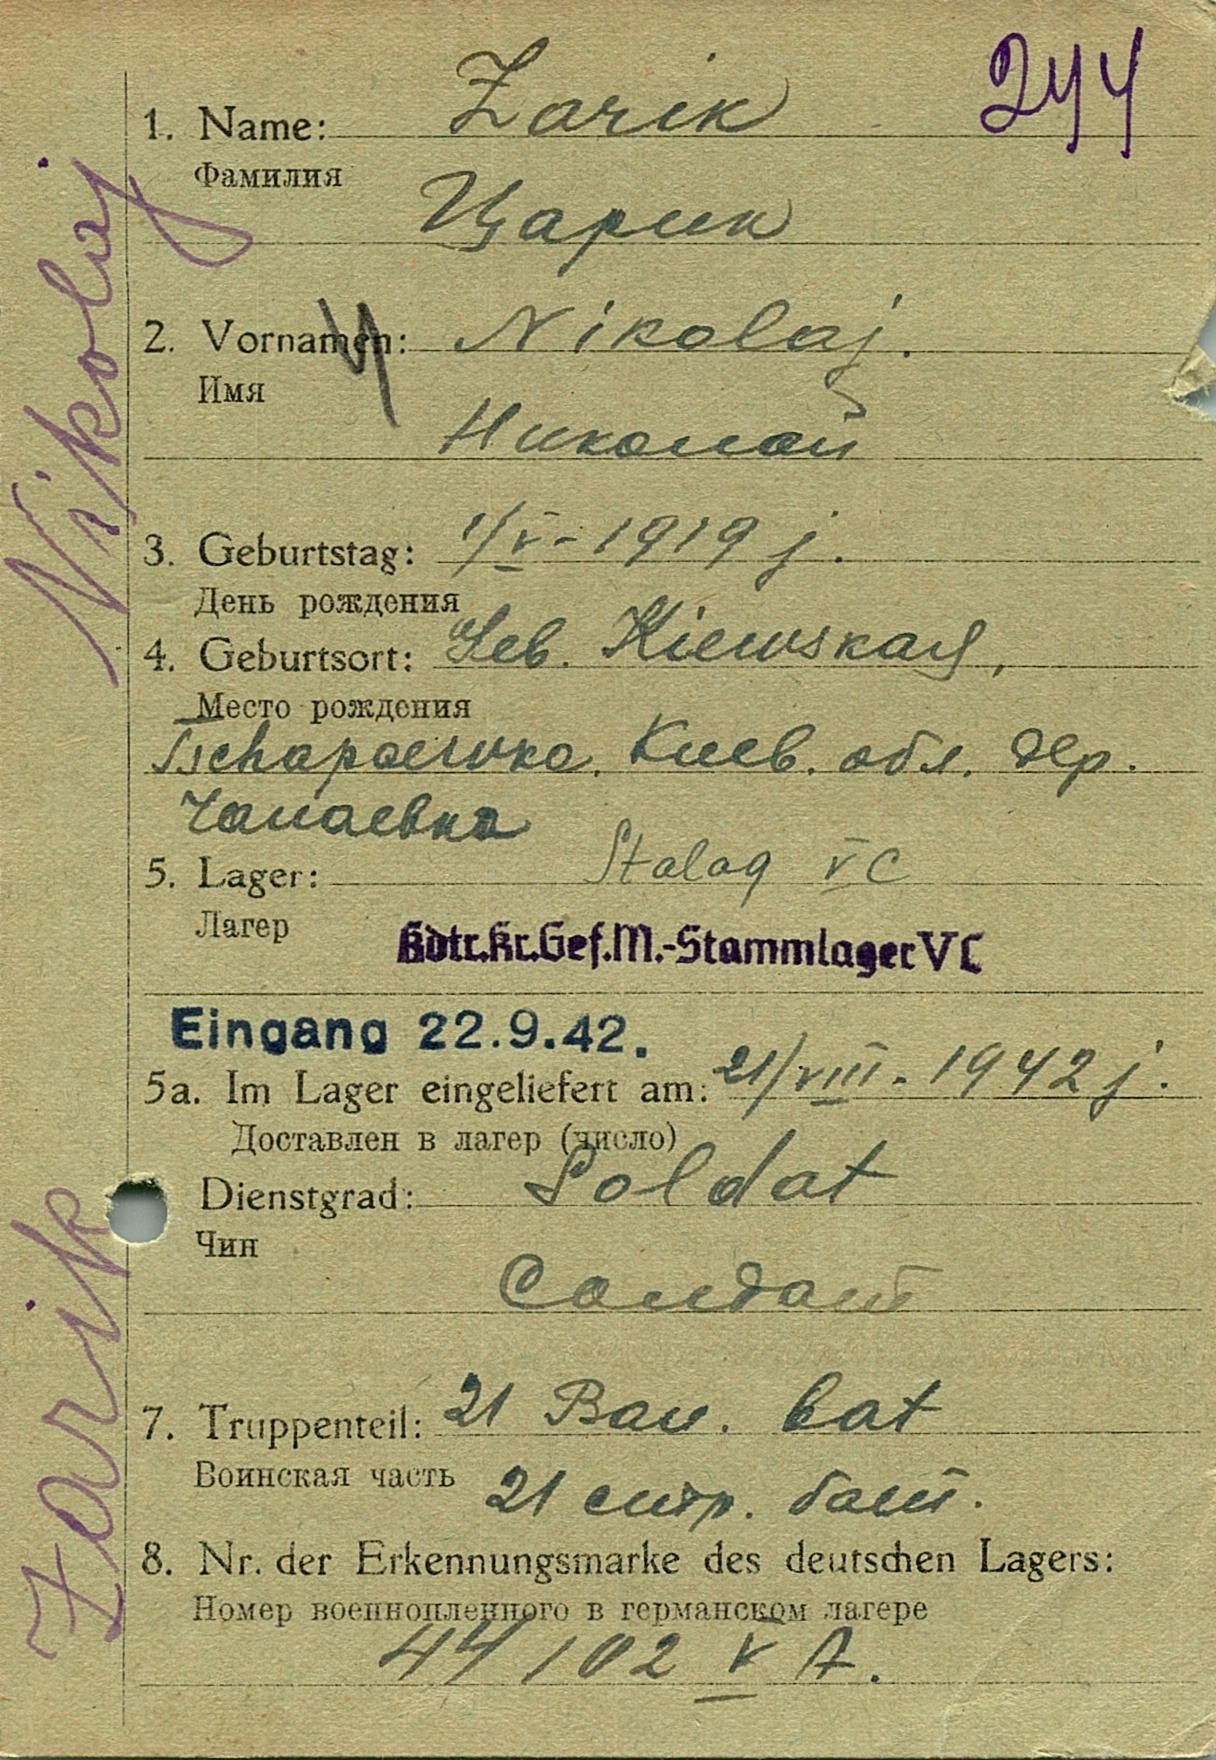 244
1. Name: Zarik
Фамилия
Царик
2. Vornamen: Nikolaj.
Имя
Николай
3. Geburtstag: 1/V - 1919 j.
День рождения
4. Geburtsort: Geb. Kiewskaja,
Место рождения
Tschapaewka. Киев. обл. дер.
Чапаевка
5. Lager: Stalag V C
Лагер
Kdtr.Kr.Gef.M.-Stammlager V C
Eingang 22.9.42.
5a. Im Lager eingeliefert am: 21/VIII - 1942 j.
Доставлен в лагер (число)
Dienstgrad: Soldat
Чин
Солдат
7. Truppenteil: 21 Bau. bat
Воинская часть
21 стр. бат.
8. Nr. der Erkennungsmarke des deutschen Lagers:
Номер военнопленного в германском лагере
44102 V A.
Zarik Nikolaj